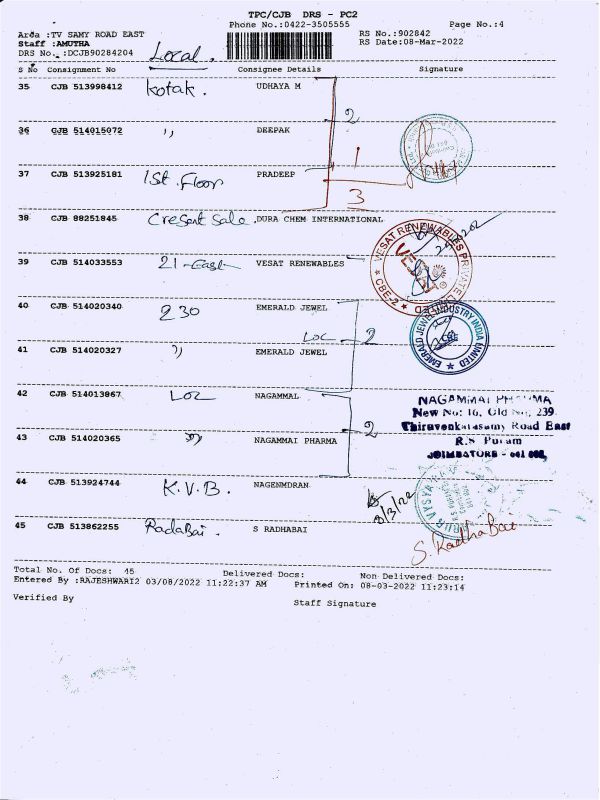 TPC/CJB DRS - PC2
Phone No.:0422-3505555
Page No.:4
Area :TV SAMY ROAD EAST
RS No.:902842
Staff :AMUTHA
RS Date:08-Mar-2022
DRS No.:DCJB90284204
Local.
S No Consignment No Consignee Details Signature
35 CJB 513998412 Kotak. UDHAYA M
2
36 CJB 514015072 " DEEPAK
1
37 CJB 513925181 1st Floor PRADEEP
3
38 CJB 88251845 Cresent Sale. DURA CHEM INTERNATIONAL
39 CJB 514033553 21-East VESAT RENEWABLES
VESAT RENEWABLES PRIVATE
CBE-2
40 CJB 514020340 230 EMERALD JEWEL
LOC 2
EMERALD JEWEL INDUSTRY INDIA LIMITED
CBE
41 CJB 514020327 " EMERALD JEWEL
42 CJB 514013867 LOC NAGAMMAL
2
NAGAMMAI PHARMA
New No: 16, Old No, 239.
Thiruvenkatasamy Road East
R.S Puram
43 CJB 514020365 " NAGAMMAI PHARMA
COIMBATORE - 641 002,
44 CJB 513924744 K.V.B. NAGENMDRAN
8/3/22
45 CJB 513862255 RadaBai. S RADHABAI
S. RadhaBai
Total No. Of Docs: 45 Delivered Docs: Non Delivered Docs:
Entered By :RAJESHWARI2 03/08/2022 11:22:37 AM Printed On: 08-03-2022 11:23:14
Verified By Staff Signature